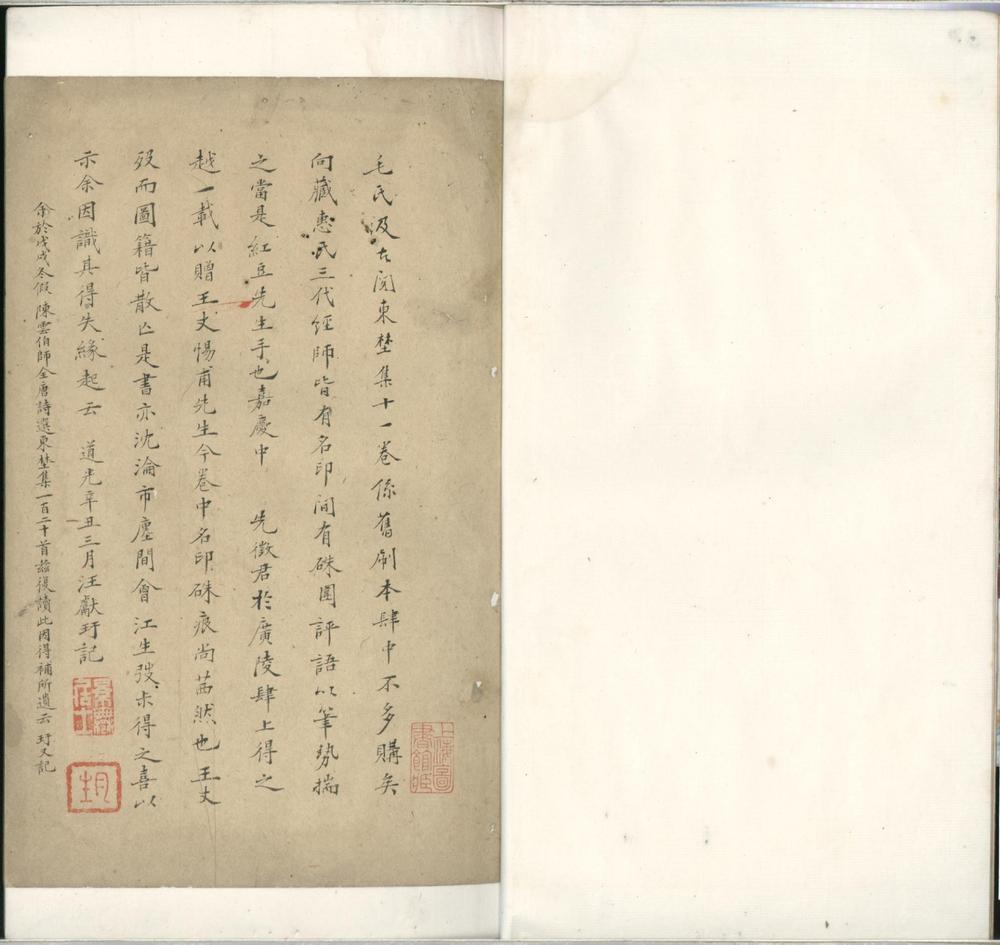 毛氏汲古閣東埜集十一卷係舊刷本肆中不多購矣
向藏惠氏三代經師皆有名印間有硃圈評語以筆勢揣
之當是紅豆先生手也嘉慶中　先徵君於廣陵肆上得之
越一載以贈王丈惕甫先生今卷中名印硃痕尚茜然也王丈
歿而圖籍皆散亾是書亦沈淪市廛間會江生弢未得之喜以
示余因識其得失緣起云　道光辛丑三月汪獻玗記
余於戊戌冬假　陳雲伯師全唐詩選東埜集一百二十首茲復讀此因得補所遺云　玗又記
上海圖書館藏